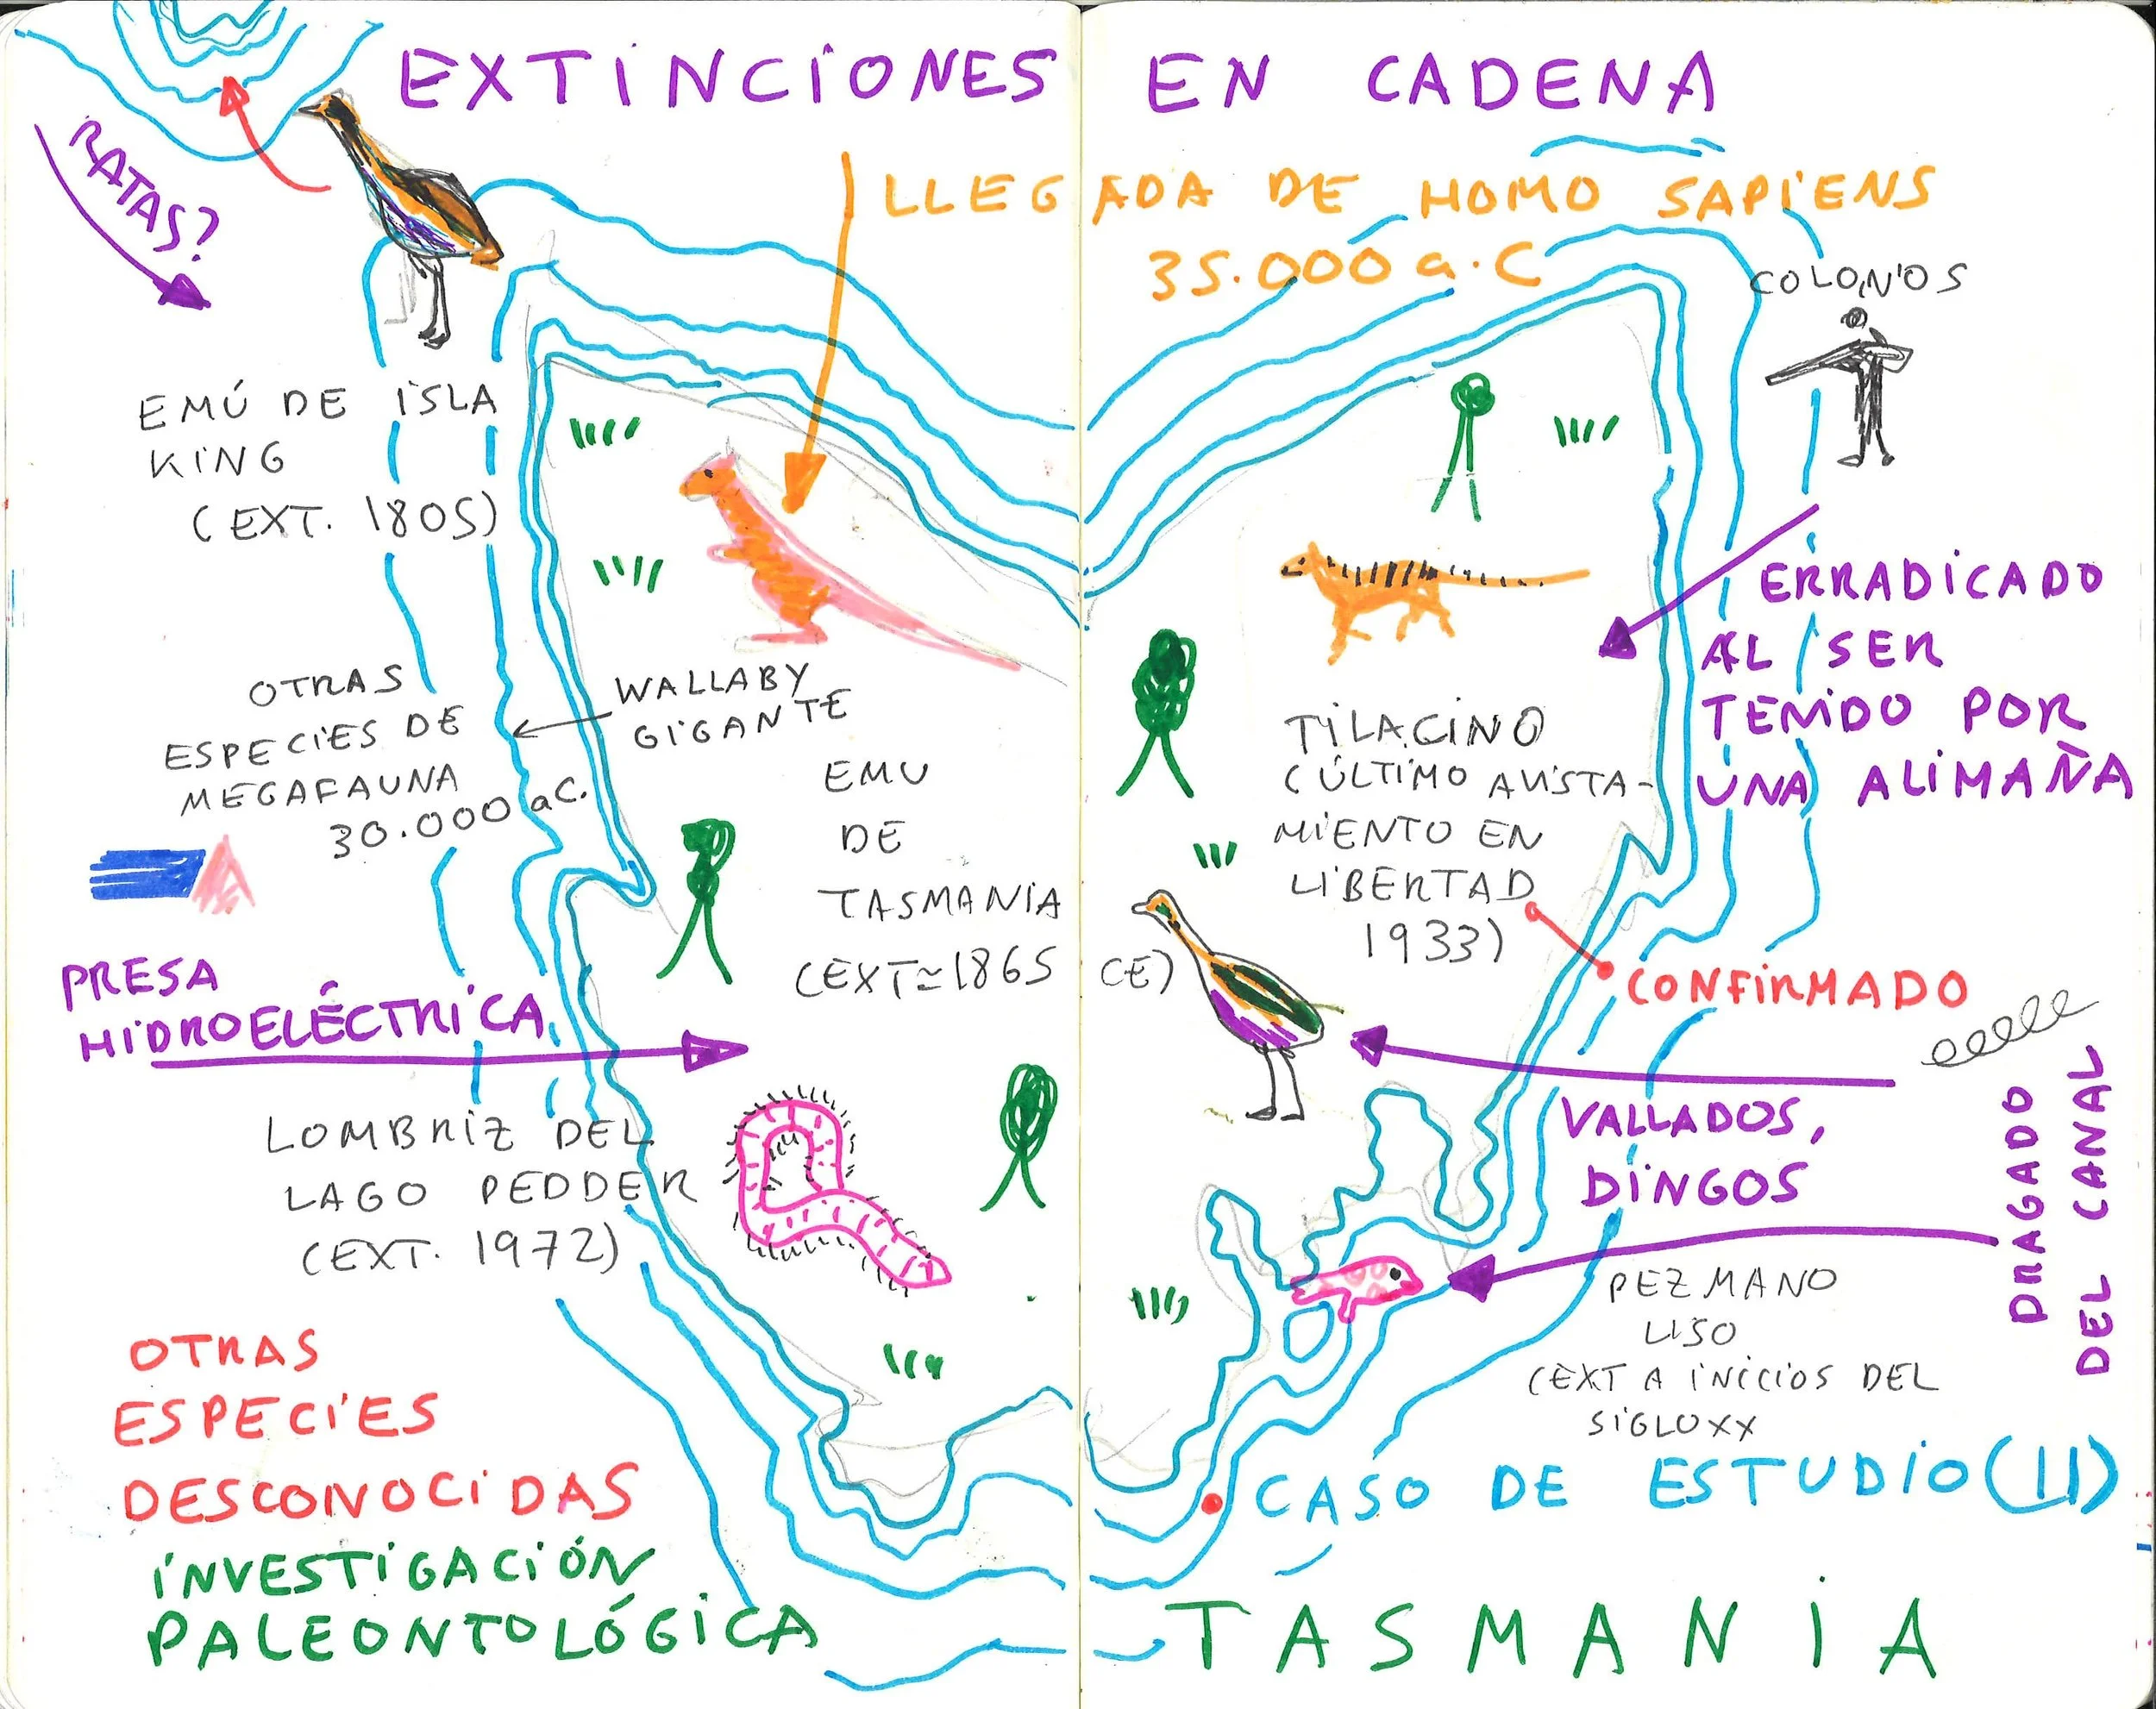 EXTINCIONES EN CADENA
RATAS?
LLEGADA DE HOMO SAPIENS
35.000 a.C
COLONOS
EMÚ DE ISLA
KING
(EXT. 1805)
ERRADICADO
AL SER
TEMIDO POR
UNA ALIMAÑA
OTRAS
ESPECIES DE
MEGAFAUNA
30.000 aC.
WALLABY
GIGANTE
EMU
DE
TASMANIA
(EXT≃1865 CE)
TILACINO
(ÚLTIMO AVISTA-
MIENTO EN
LIBERTAD
1933)
CONFIRMADO
PRESA
HIDROELÉCTRICA
VALLADOS,
DINGOS
DRAGADO
DEL CANAL
LOMBRIZ DEL
LAGO PEDDER
(EXT. 1972)
PEZ MANO
LISO
(EXT A INICIOS DEL
SIGLO XX
OTRAS
ESPECIES
DESCONOCIDAS
INVESTIGACIÓN
PALEONTOLÓGICA
CASO DE ESTUDIO (II)
TASMANIA